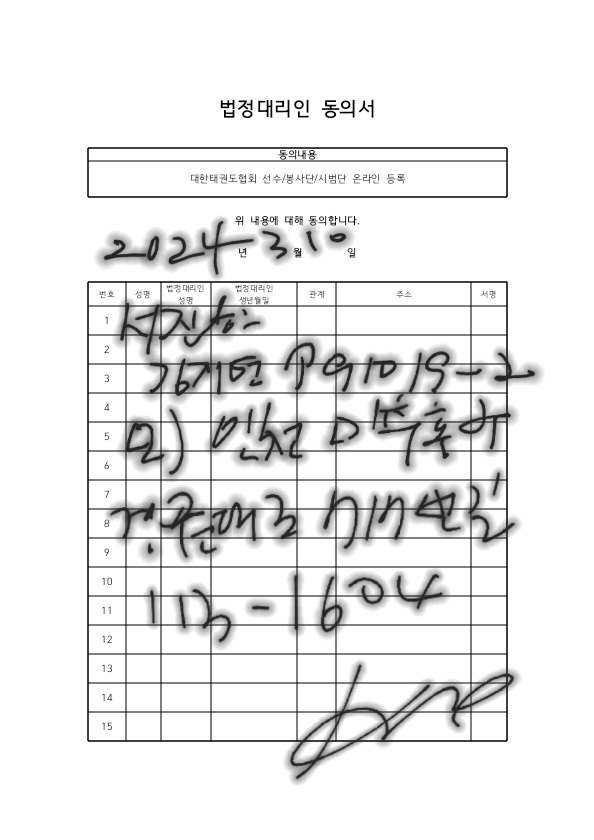 법정대리인 동의서
동의내용
대한태권도협회 선수/봉사단/시범단 온라인 등록
위 내용에 대해 동의합니다.
2024년 3월 10일
번호 성명 법정대리인 성명 법정대리인 생년월일 관계 주소 서명
1
2
3
4
5
6
7
8
9
10
11
12
13
14
15
서진
김지연
모) 인천 미추홀
경원대로
113-1604